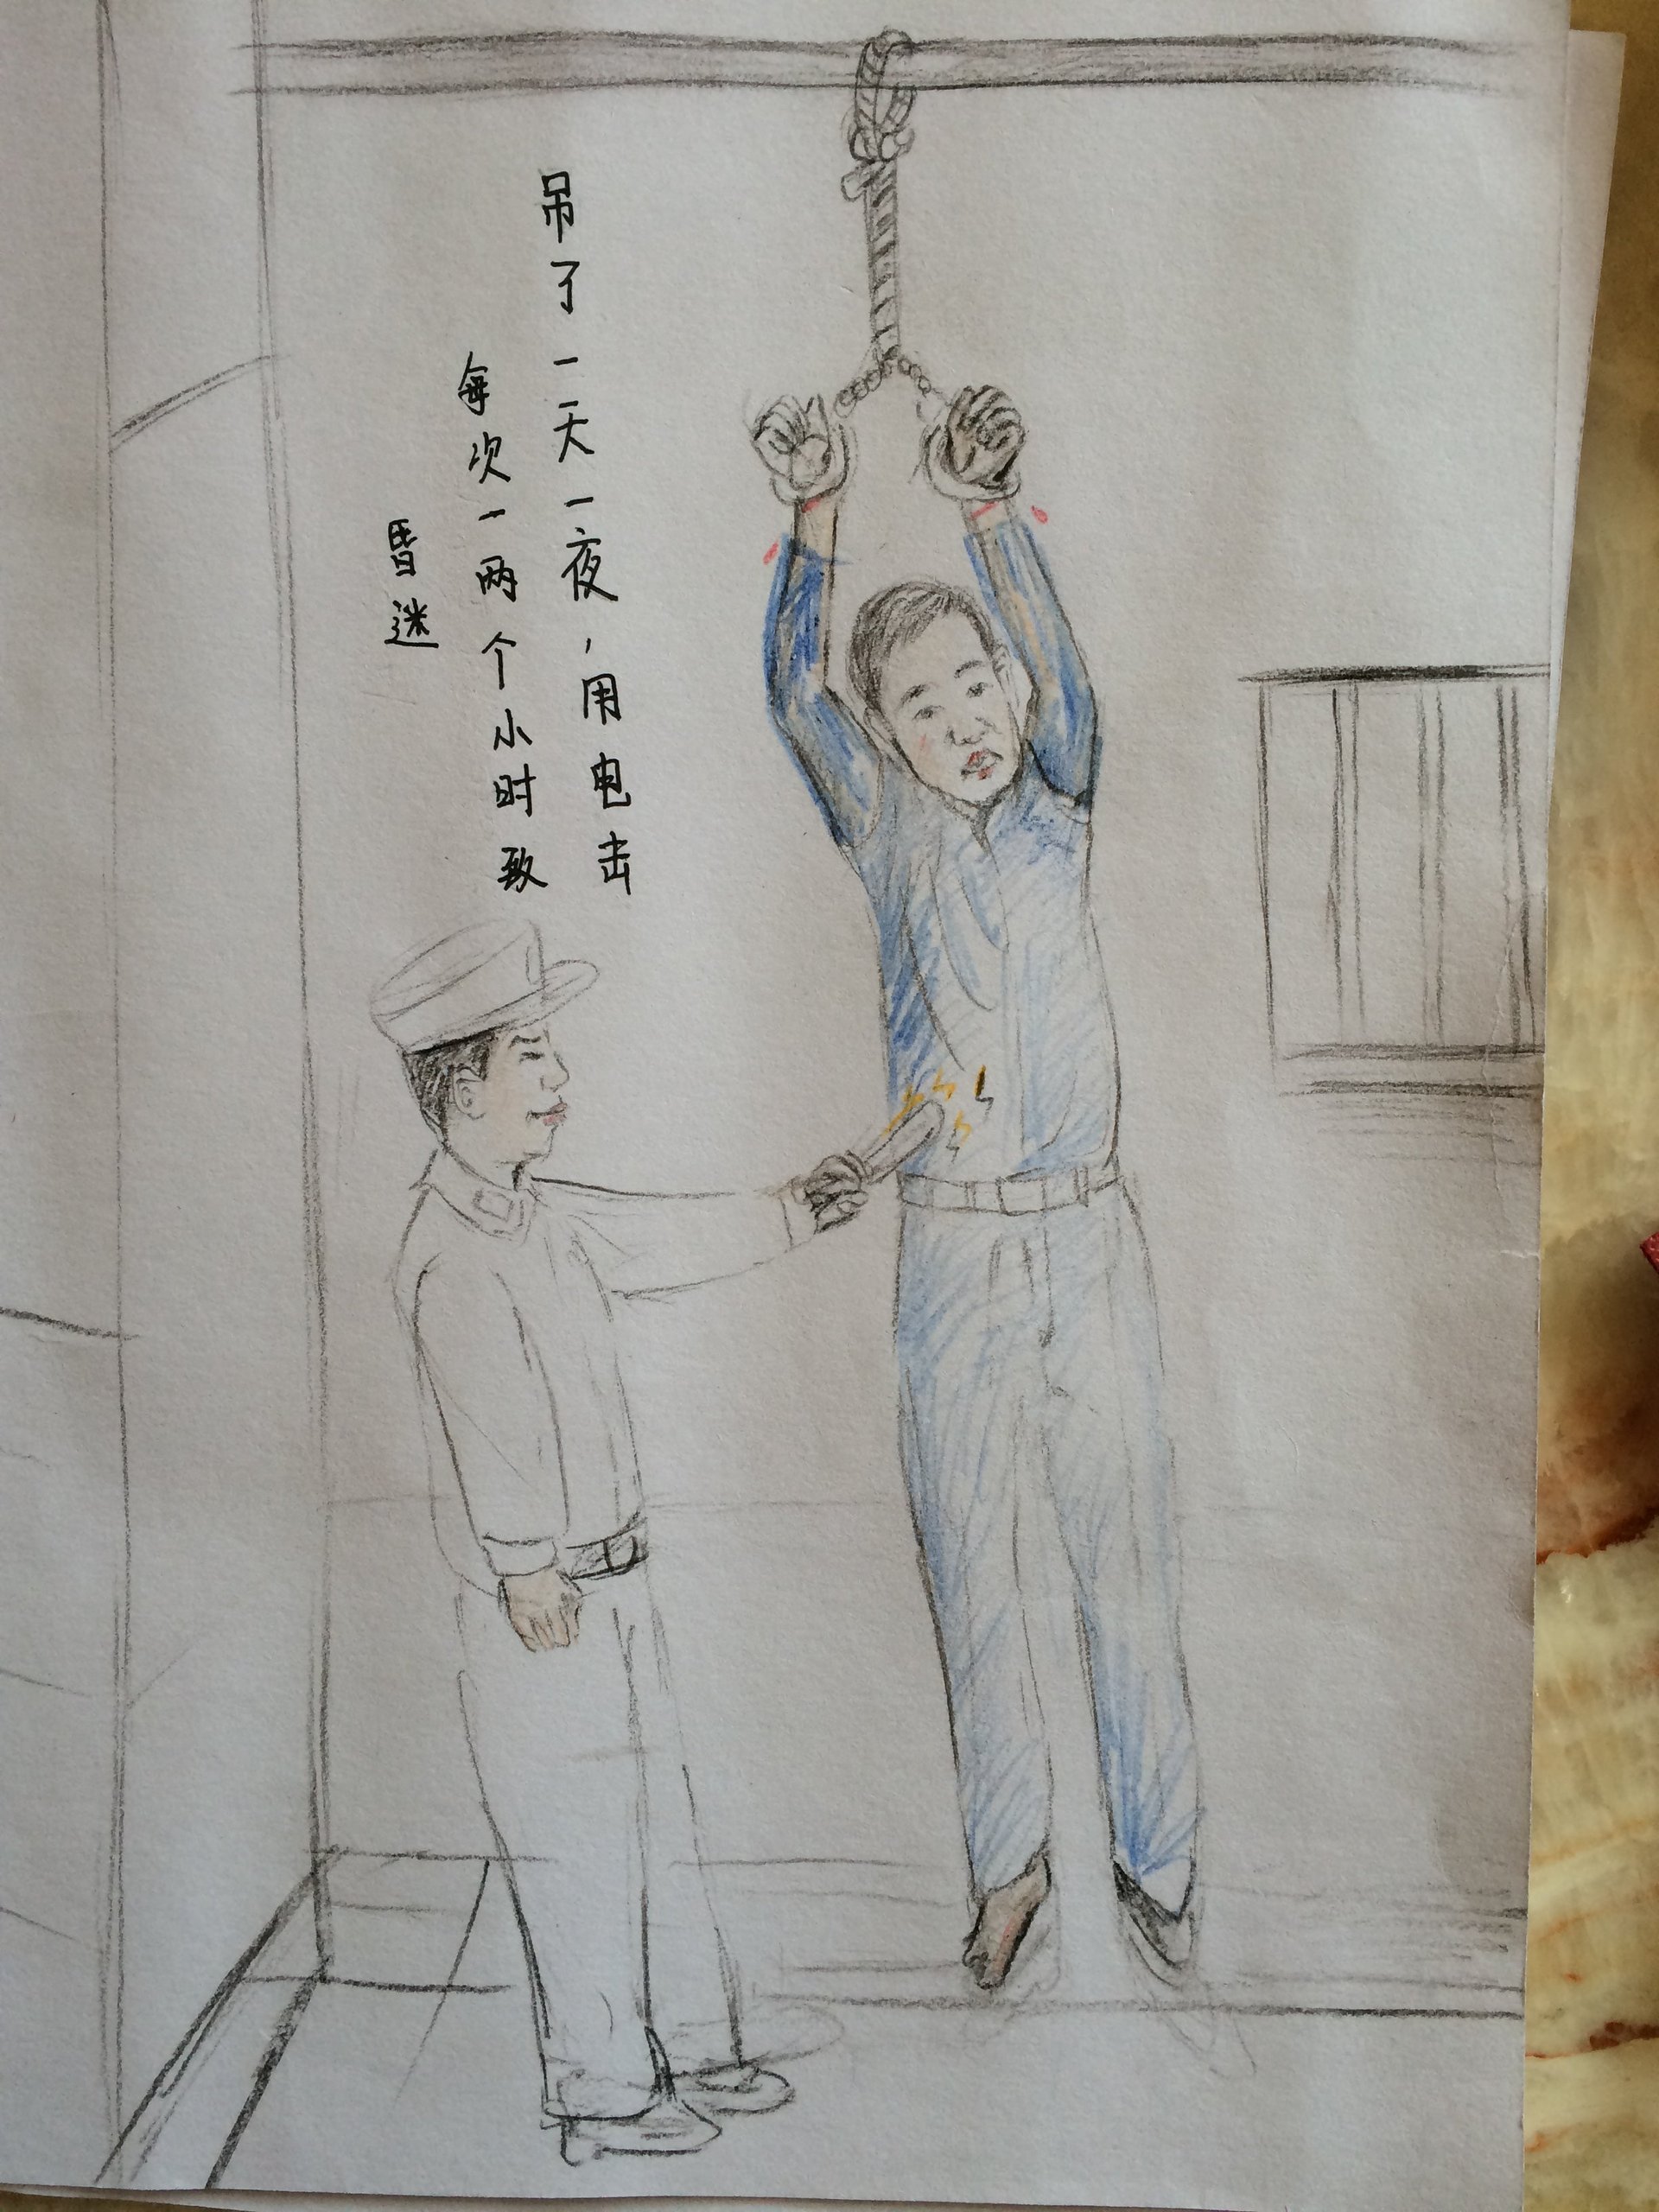 吊了一天一夜，用电击
每次一两个小时致
昏迷